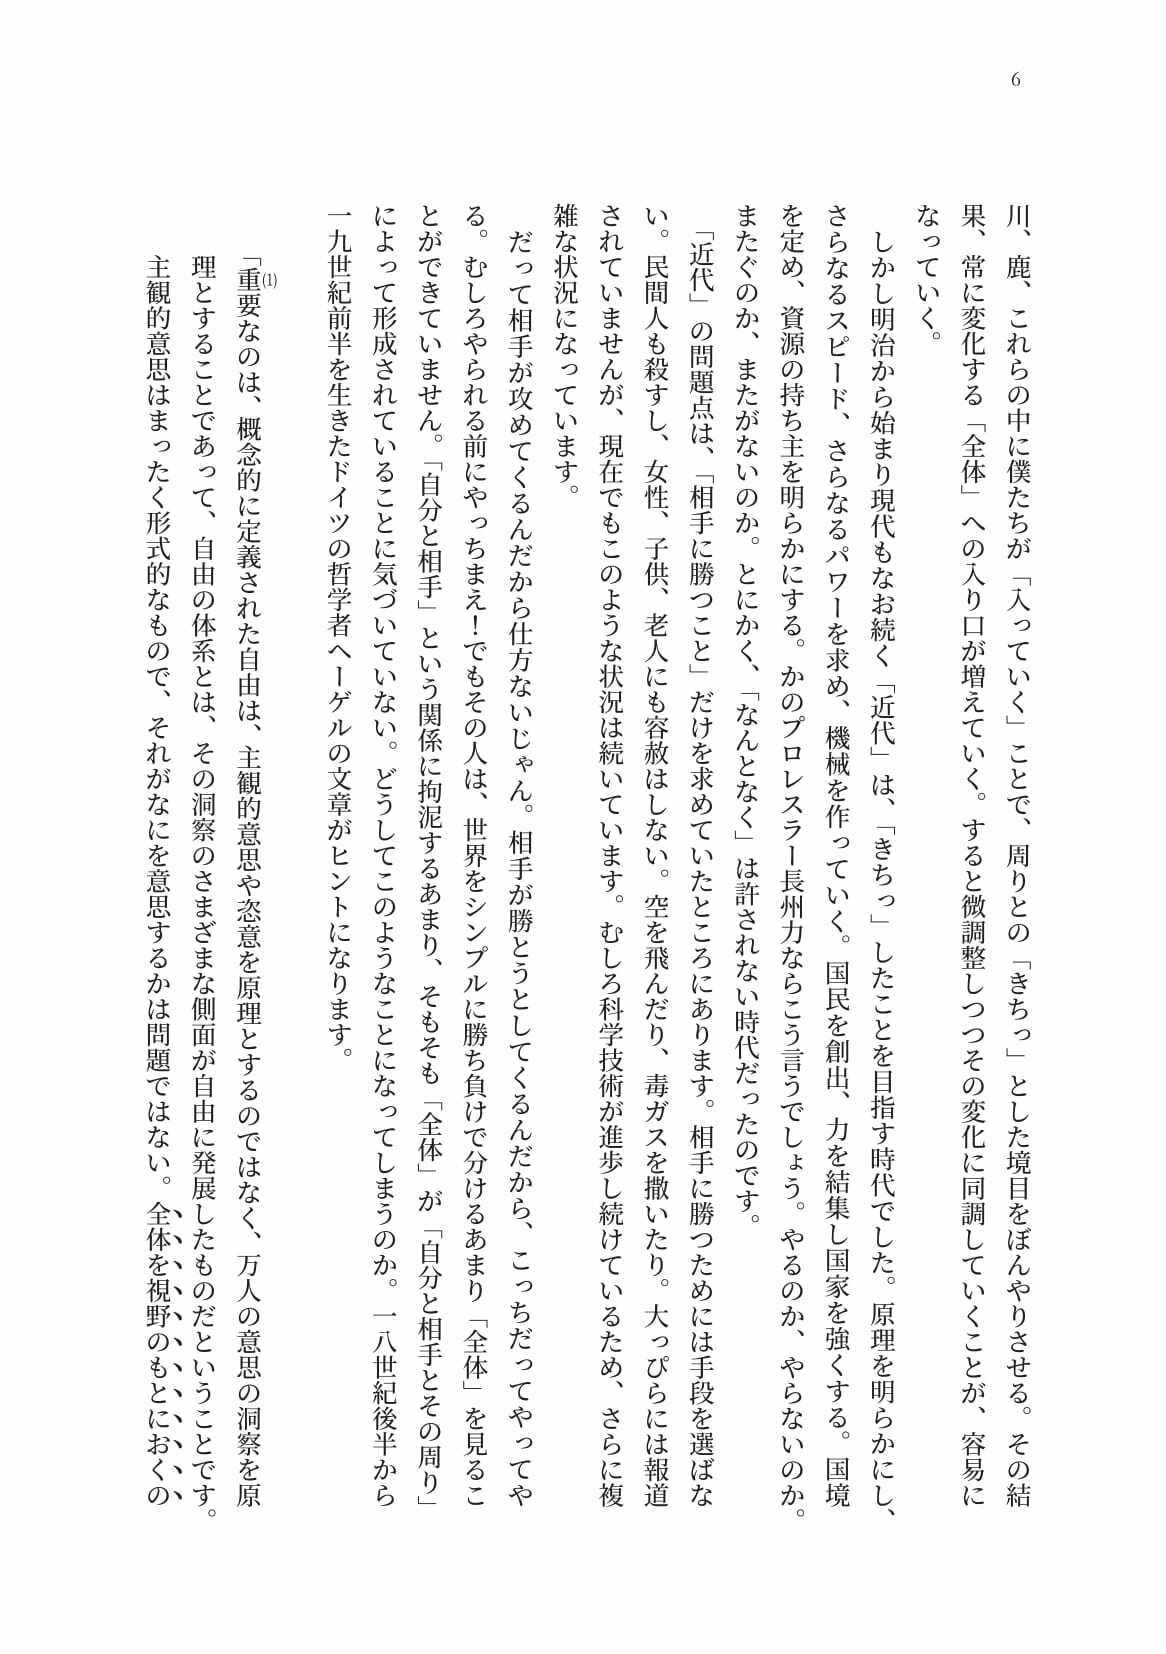 6
川、鹿、これらの中に僕たちが「入っていく」ことで、周りとの「きちっ」とした境目をぼんやりさせる。その結
果、常に変化する「全体」への入り口が増えていく。すると微調整しつつその変化に同調していくことが、容易に
なっていく。
しかし明治から始まり現代もなお続く「近代」は、「きちっ」したことを目指す時代でした。原理を明らかにし、
さらなるスピード、さらなるパワーを求め、機械を作っていく。国民を創出、力を結集し国家を強くする。国境
を定め、資源の持ち主を明らかにする。かのプロレスラー長州力ならこう言うでしょう。やるのか、やらないのか。
またぐのか、またがないのか。とにかく、「なんとなく」は許されない時代だったのです。
「近代」の問題点は、「相手に勝つこと」だけを求めていたところにあります。相手に勝つためには手段を選ばな
い。民間人も殺すし、女性、子供、老人にも容赦はしない。空を飛んだり、毒ガスを撒いたり。大っぴらには報道
されていませんが、現在でもこのような状況は続いています。むしろ科学技術が進歩し続けているため、さらに複
雑な状況になっています。
だって相手が攻めてくるんだから仕方ないじゃん。相手が勝とうとしてくるんだから、こっちだってやってや
る。むしろやられる前にやっちまえ！でもその人は、世界をシンプルに勝ち負けで分けるあまり「全体」を見るこ
とができていません。「自分と相手」という関係に拘泥するあまり、そもそも「全体」が「自分と相手とその周り」
によって形成されていることに気づいていない。どうしてこのようなことになってしまうのか。一八世紀後半から
一九世紀前半を生きたドイツの哲学者ヘーゲルの文章がヒントになります。
「重要なのは、概念的に定義された自由は、主観的意思や恣意を原理とするのではなく、万人の意思の洞察を原
(1)
理とすることであって、自由の体系とは、その洞察のさまざまな側面が自由に発展したものだということです。
主観的意思はまったく形式的なもので、それがなにを意思するかは問題ではない。全体を視野のもとにおくの